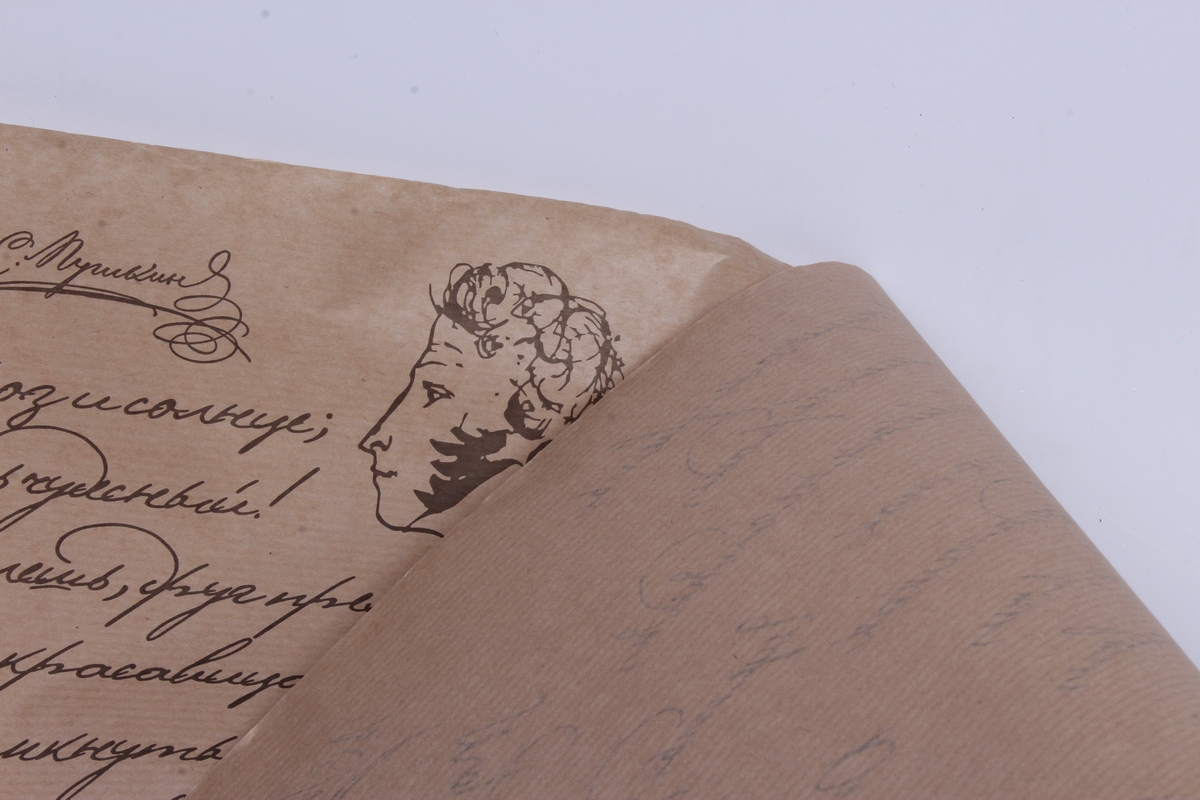 С. Пушкин
оз и солнце;
ь чудесный!
лешь, друг пре
красавица
икнуты